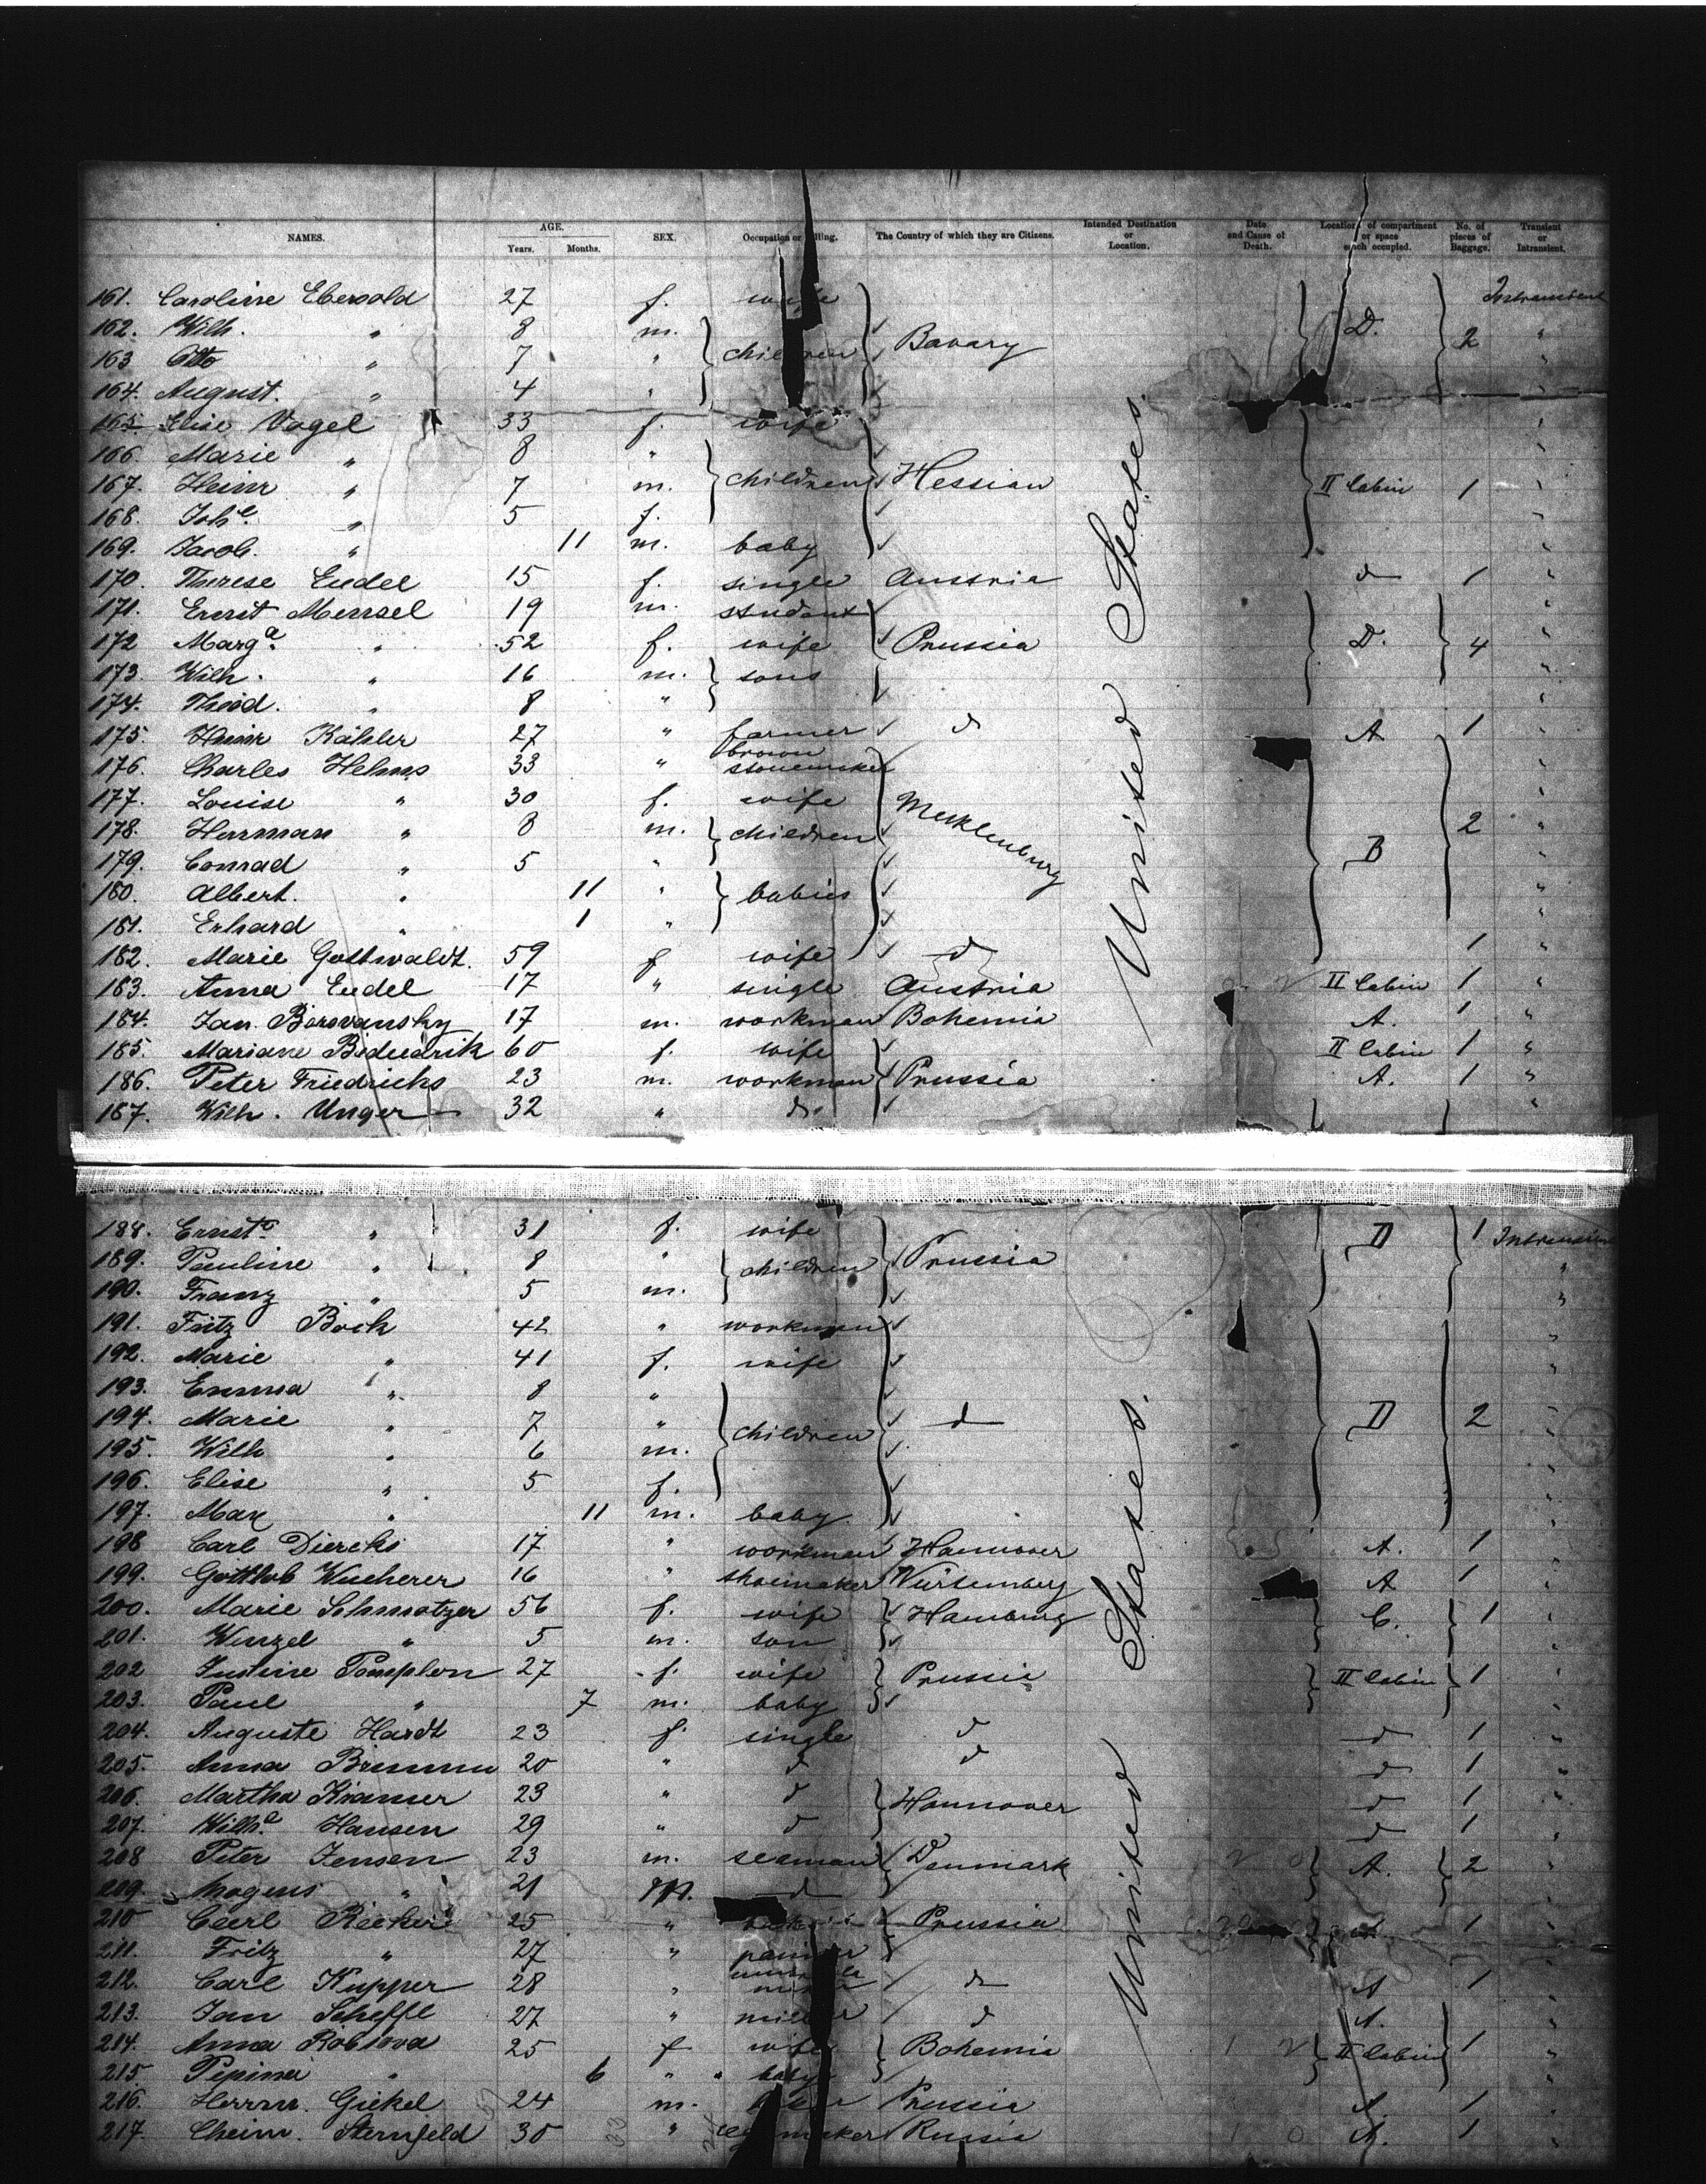 NAMES. AGE. Years. Months. SEX. Occupation or The Country of which they are Citizens. Intended Destination or Location. Date and Cause of Death. Location of compartment or space each occupied. No. of pieces of Baggage. Transient or Intransient.
161. Caroline Ebersold 27 f. wife
162. Wilh. " 8 m. Bavary D. 2 "
163 Otto " 7 " children "
164. August. " 4 " "
165. Elise Vogel 33 f. wife "
166 Marie " 8 " "
167. Heinr " 7 m. children Hessian II Cabin 1 "
168. Johe. " 5 f. "
169. Jacob. " 11 m. baby "
170. Therese Eudel 15 f. single Austria d 1 "
171. Ernst Mensel 19 m. student "
172 Marga. " 52 f. wife Prussia D. 4 "
173. Wilh. " 16 m. sons "
174. Theod. " 8 " "
175. Heinr Kähler 27 " farmer d A 1 "
176. Charles Helms 33 " brown stonemaker "
177. Louise " 30 f. wife Mecklenburg "
178. Herrman " 8 m. children 2 "
179. Conrad " 5 " B "
180. Albert. " 11 " babies "
181. Erhard " 1 " "
182. Marie Gottwaldt. 59 f wife d 1 "
183. Anna Eudel 17 " single Austria II Cabin 1 "
184. Jan. Borovansky 17 m. workman Bohemia A. 1 "
185. Mariane 60 f. wife II Cabin 1 "
186. Peter Friedrichs 23 m. workman Prussia A. 1 "
187. Wilh. Unger 32 " d.
United States.
188. Ernste " 31 f. wife D 1
189. Pauline " 8 " children Prussia "
190. Franz " 5 m. "
191. Fritz Bock 42 " workman "
192. Marie " 41 f. wife "
193. Emma " 8 "
194. Marie " 7 " children d D 2 "
195. Wilh " 6 m. "
196. Elise " 5 f. "
197. Max " 11 m. baby "
198 Carl Diercks 17 " workman Hannover A. 1 "
199. Gottlob Wucherer 16 " shoemaker Würtemberg A 1 "
200. Marie Schmatzer 56 f. wife Hamburg C. 1
201. Wenzel " 5 m. son
202 Justine Pamplon 27 f. wife Prussia II Cabin 1 "
203. Paul " 7 m. baby "
204. Auguste Hardt 23 f. single d d 1 "
205. Anna 20 " d d d 1 "
206. Martha Kramer 23 " d Hannover d 1 "
207. Wilha. Hansen 29 " d d 1 "
208 Peter Jensen 23 m. seaman Denmark A. 2 "
209. Mogens " 21 m. d
210 Carl 25 " Prussia 1 "
211. Fritz " 27 "
212. Carl Kupper 28 " d A 1 "
213. Jan Scheffl 27 " miller d A. "
214. Anna Robsova 25 f wife Bohemia II Cabin 1 "
215. Pepina " 6 " baby "
216. Herrm. Giekel 24 m. Prussia A. 1 "
217. Cheim. Sternfeld 30 " Russia A. 1 "
United States.